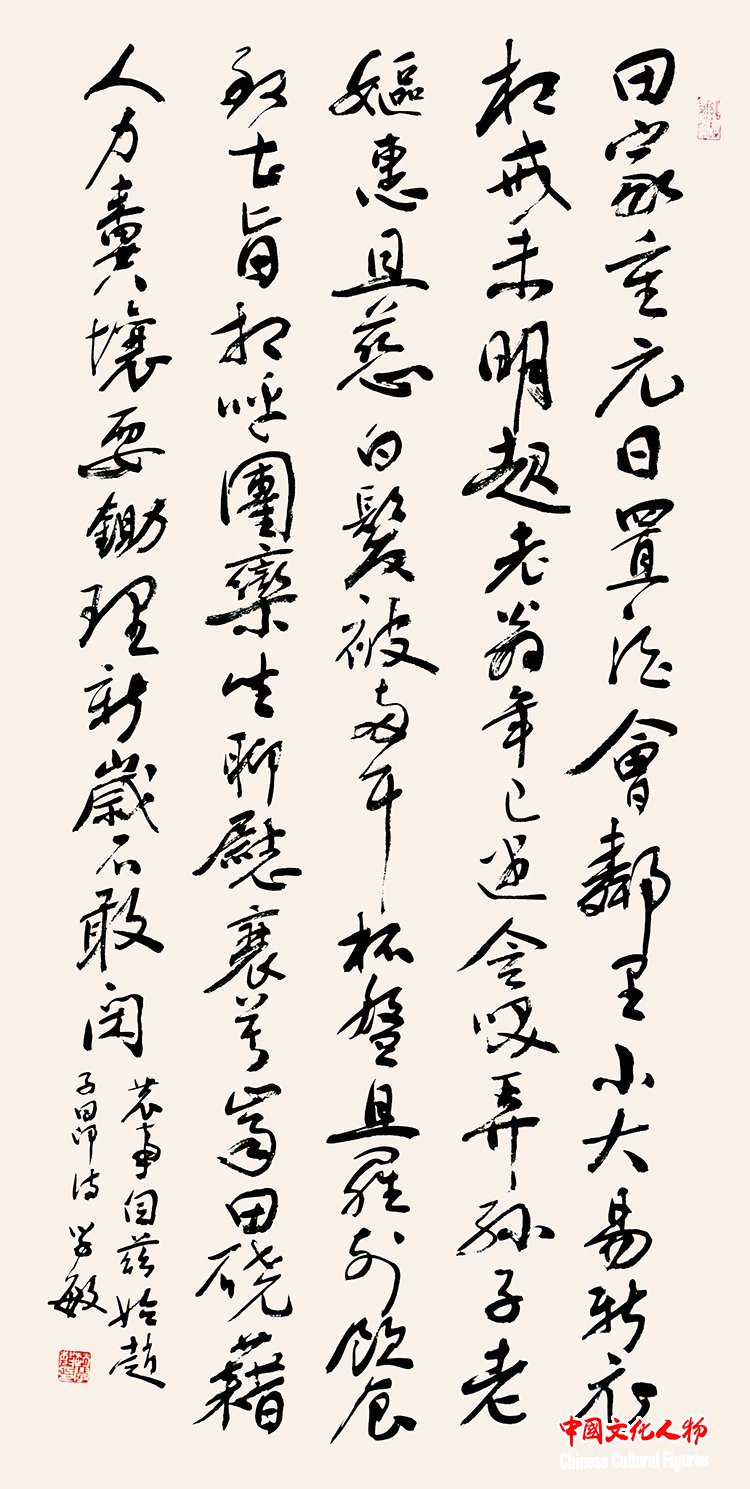 田家重元日置酒會鄰里小大易新衣
相戒未明起老翁年已邁含咲弄孫子老
嫗惠且慈白髮被兩耳杯盤且羅列飲食
致甘旨相呼團欒坐聊慰衰莫齒田磽藉
人力糞壤要鋤理新歲不敢閑
農事自茲始趙
子昂詩 学敏
中國文化人物
Chinese Cultural Figures